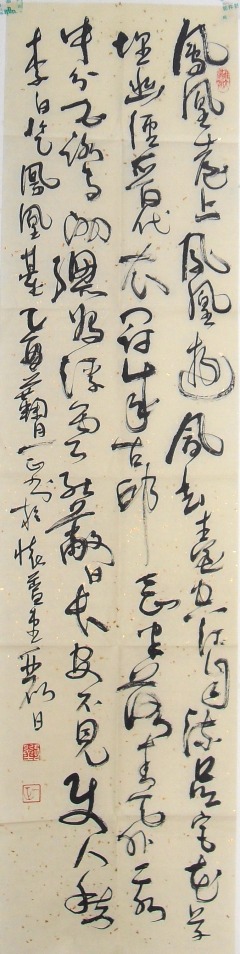 鳳凰臺上鳳凰遊鳳去臺空江自流吳宮花草
埋幽徑晉代衣冠成古邱三山半落青天外二水
中分白鷺洲總為浮雲能蔽日長安不見使人愁
李白登鳳凰臺乙酉